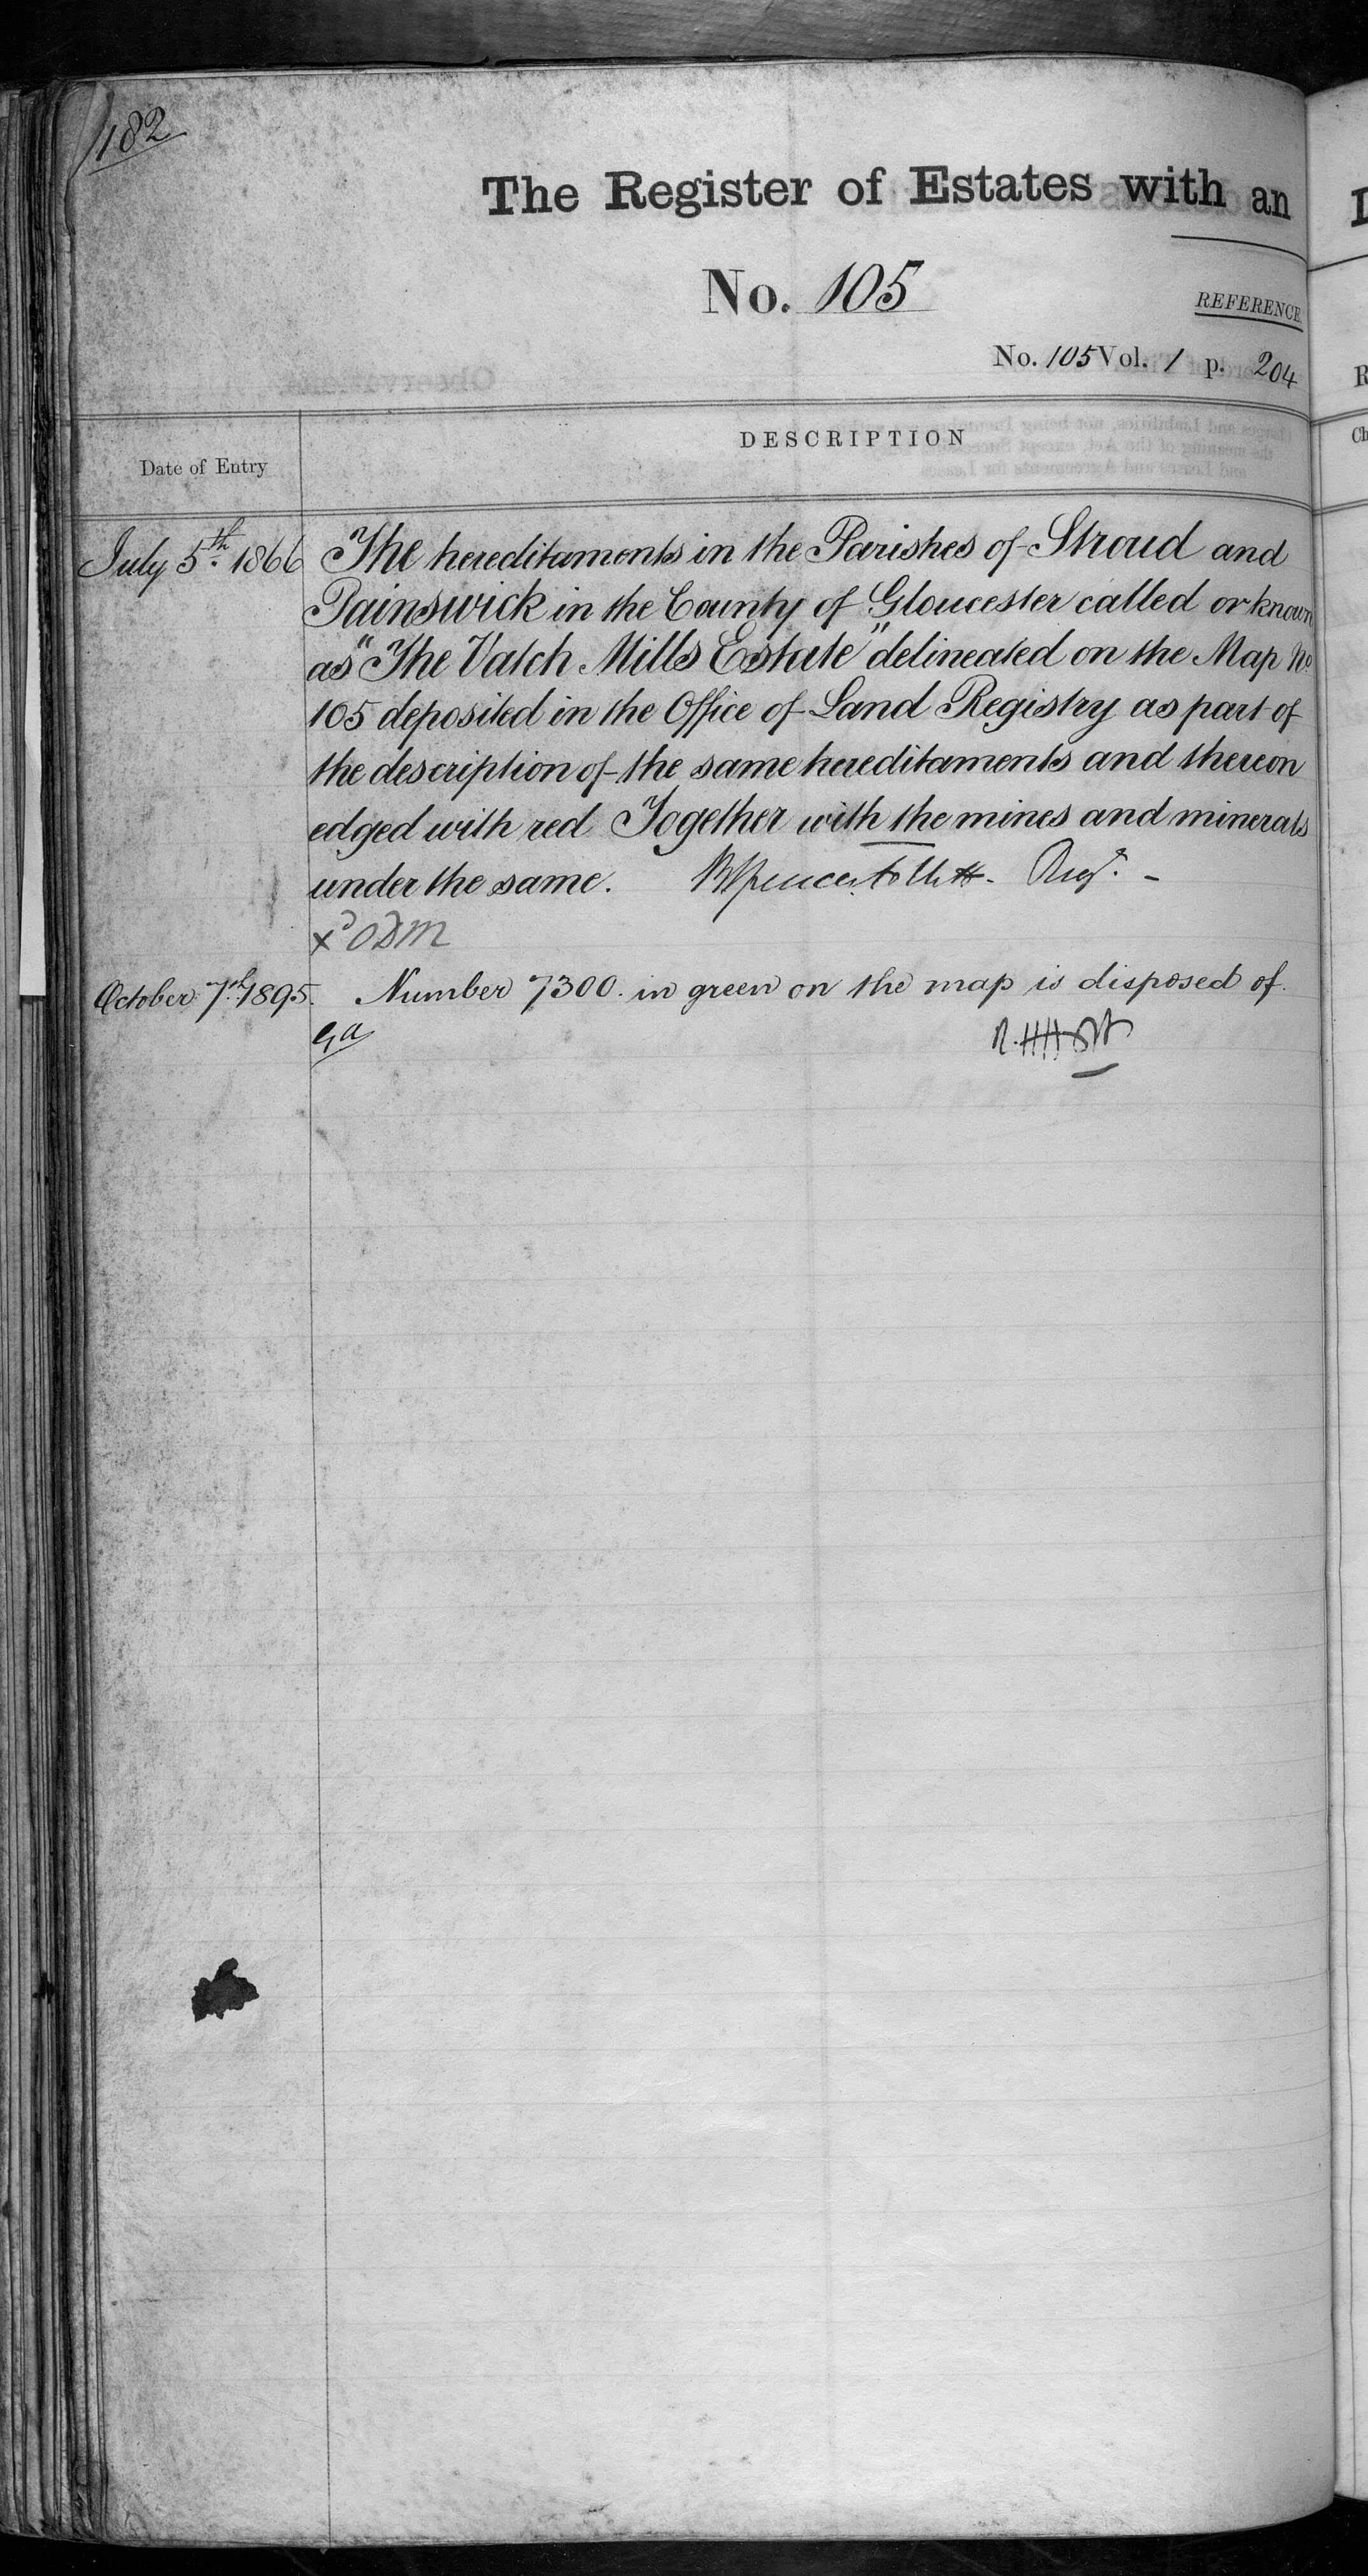 182
The Register of Estates with an
No. 105
REFERENCE.
No. 105 Vol. 1 p. 204
Date of Entry
DESCRIPTION
July 5th. 1866 The hereditaments in the Parishes of Stroud and
Painswick in the County of Gloucester called or known
as "The Vatch Mills Estate" delineated on the Map No.
105 deposited in the Office of Land Registry as part of
the description of the same hereditaments and thereon
edged with red Together with the mines and minerals
under the same. Regr.
xd ODM
October 7th. 1895. Number 7300. in green on the map is disposed of.